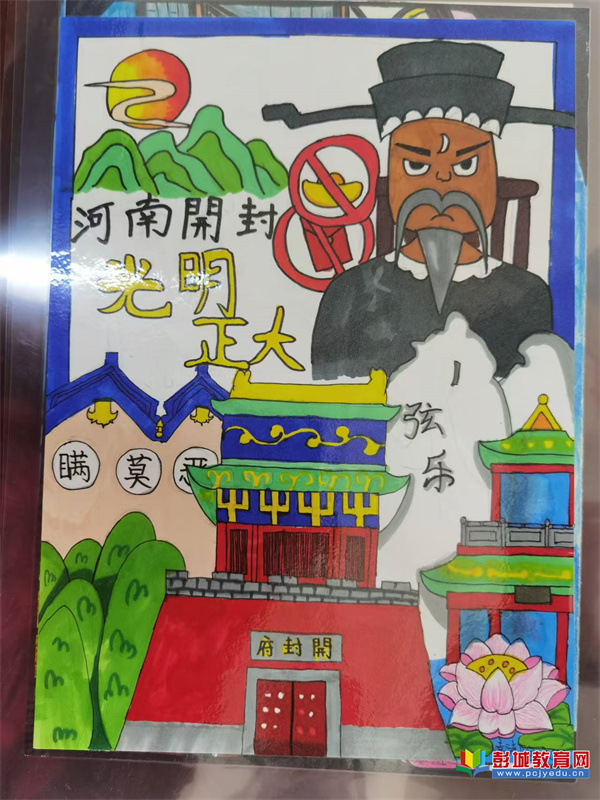 河南開封
光明
正大
瞒莫恶
弦乐
開封府
彭城教育网
www.pcjyedu.cn